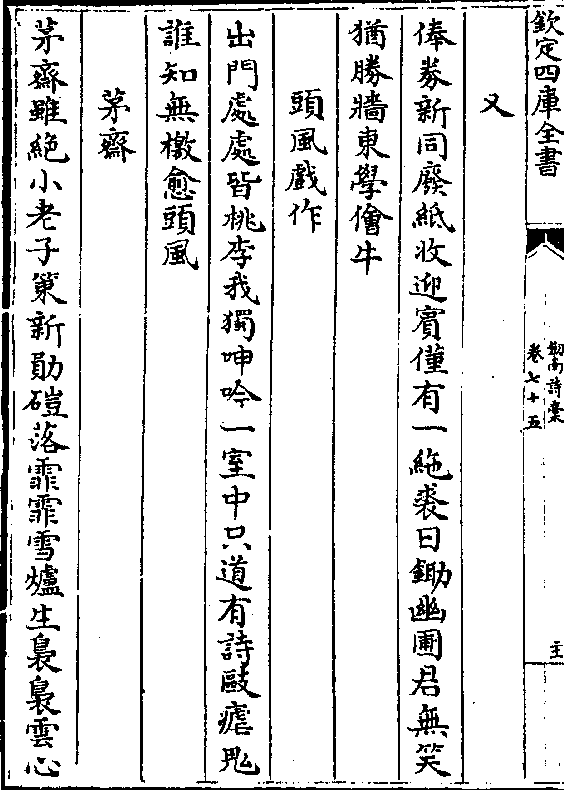 欽定四庫全書
劒南詩稾
卷七十五
又
俸劵新同廢紙收迎賓僅有一絁裘日鋤幽圃君無笑
猶勝牆東學儈牛
頭風戲作
出門處處皆桃李我獨呻吟一室中只道有詩敺瘧鬼
誰知無檄愈頭風
茅齋
茅齋雖絶小老子策新勛磑落霏霏雪爐生裊裊雲心